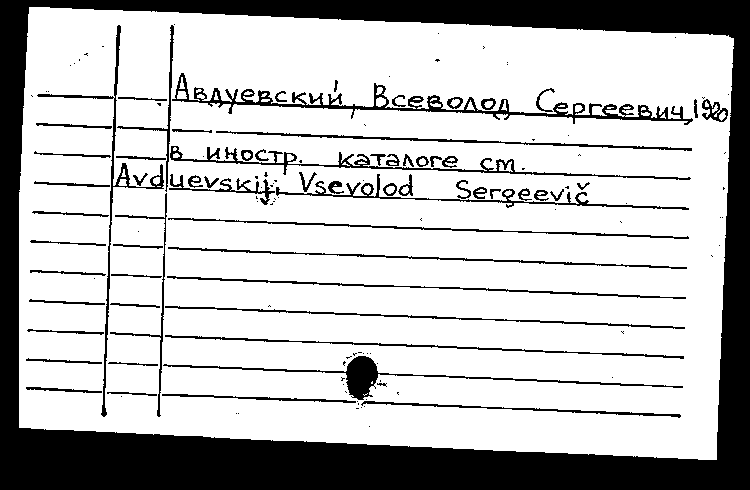 Авдуевский, Всеволод Сергеевич, 1920
в иностр. каталоге см.
Avduevskij, Vsevolod Sergeevič